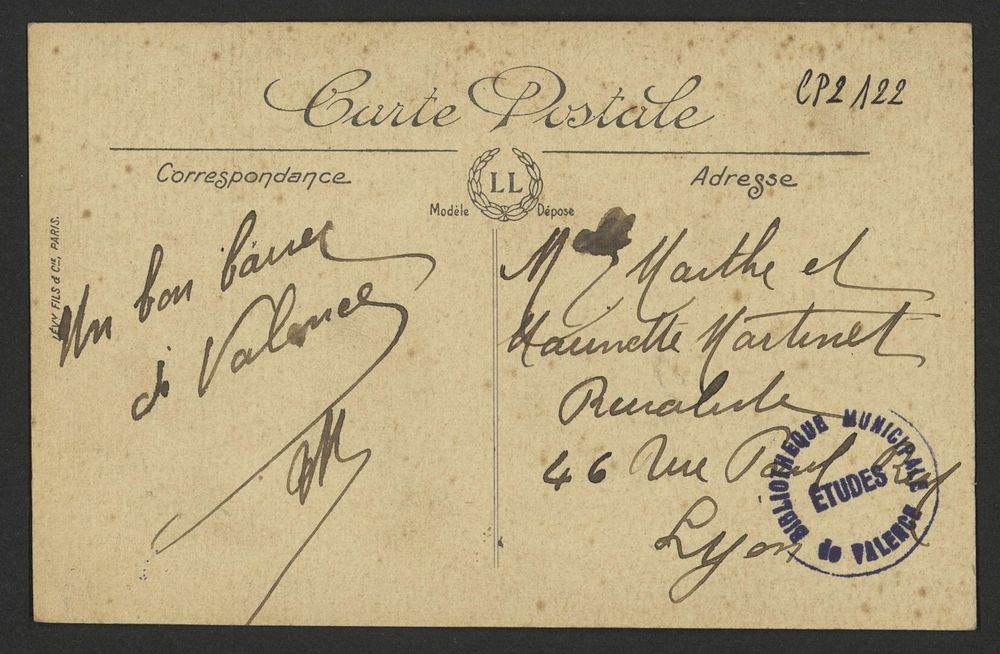 Carte Postale
CP2 122
Correspondance
Adresse
LL
Modèle Déposé
LÉVY FILS & Cie, PARIS.
Un bon baiser
de Valence
M Marthe et
Martinet
46 Rue Paul
Lyon
BIBLIOTHEQUE MUNICIPALE
ÉTUDES
de VALENCE